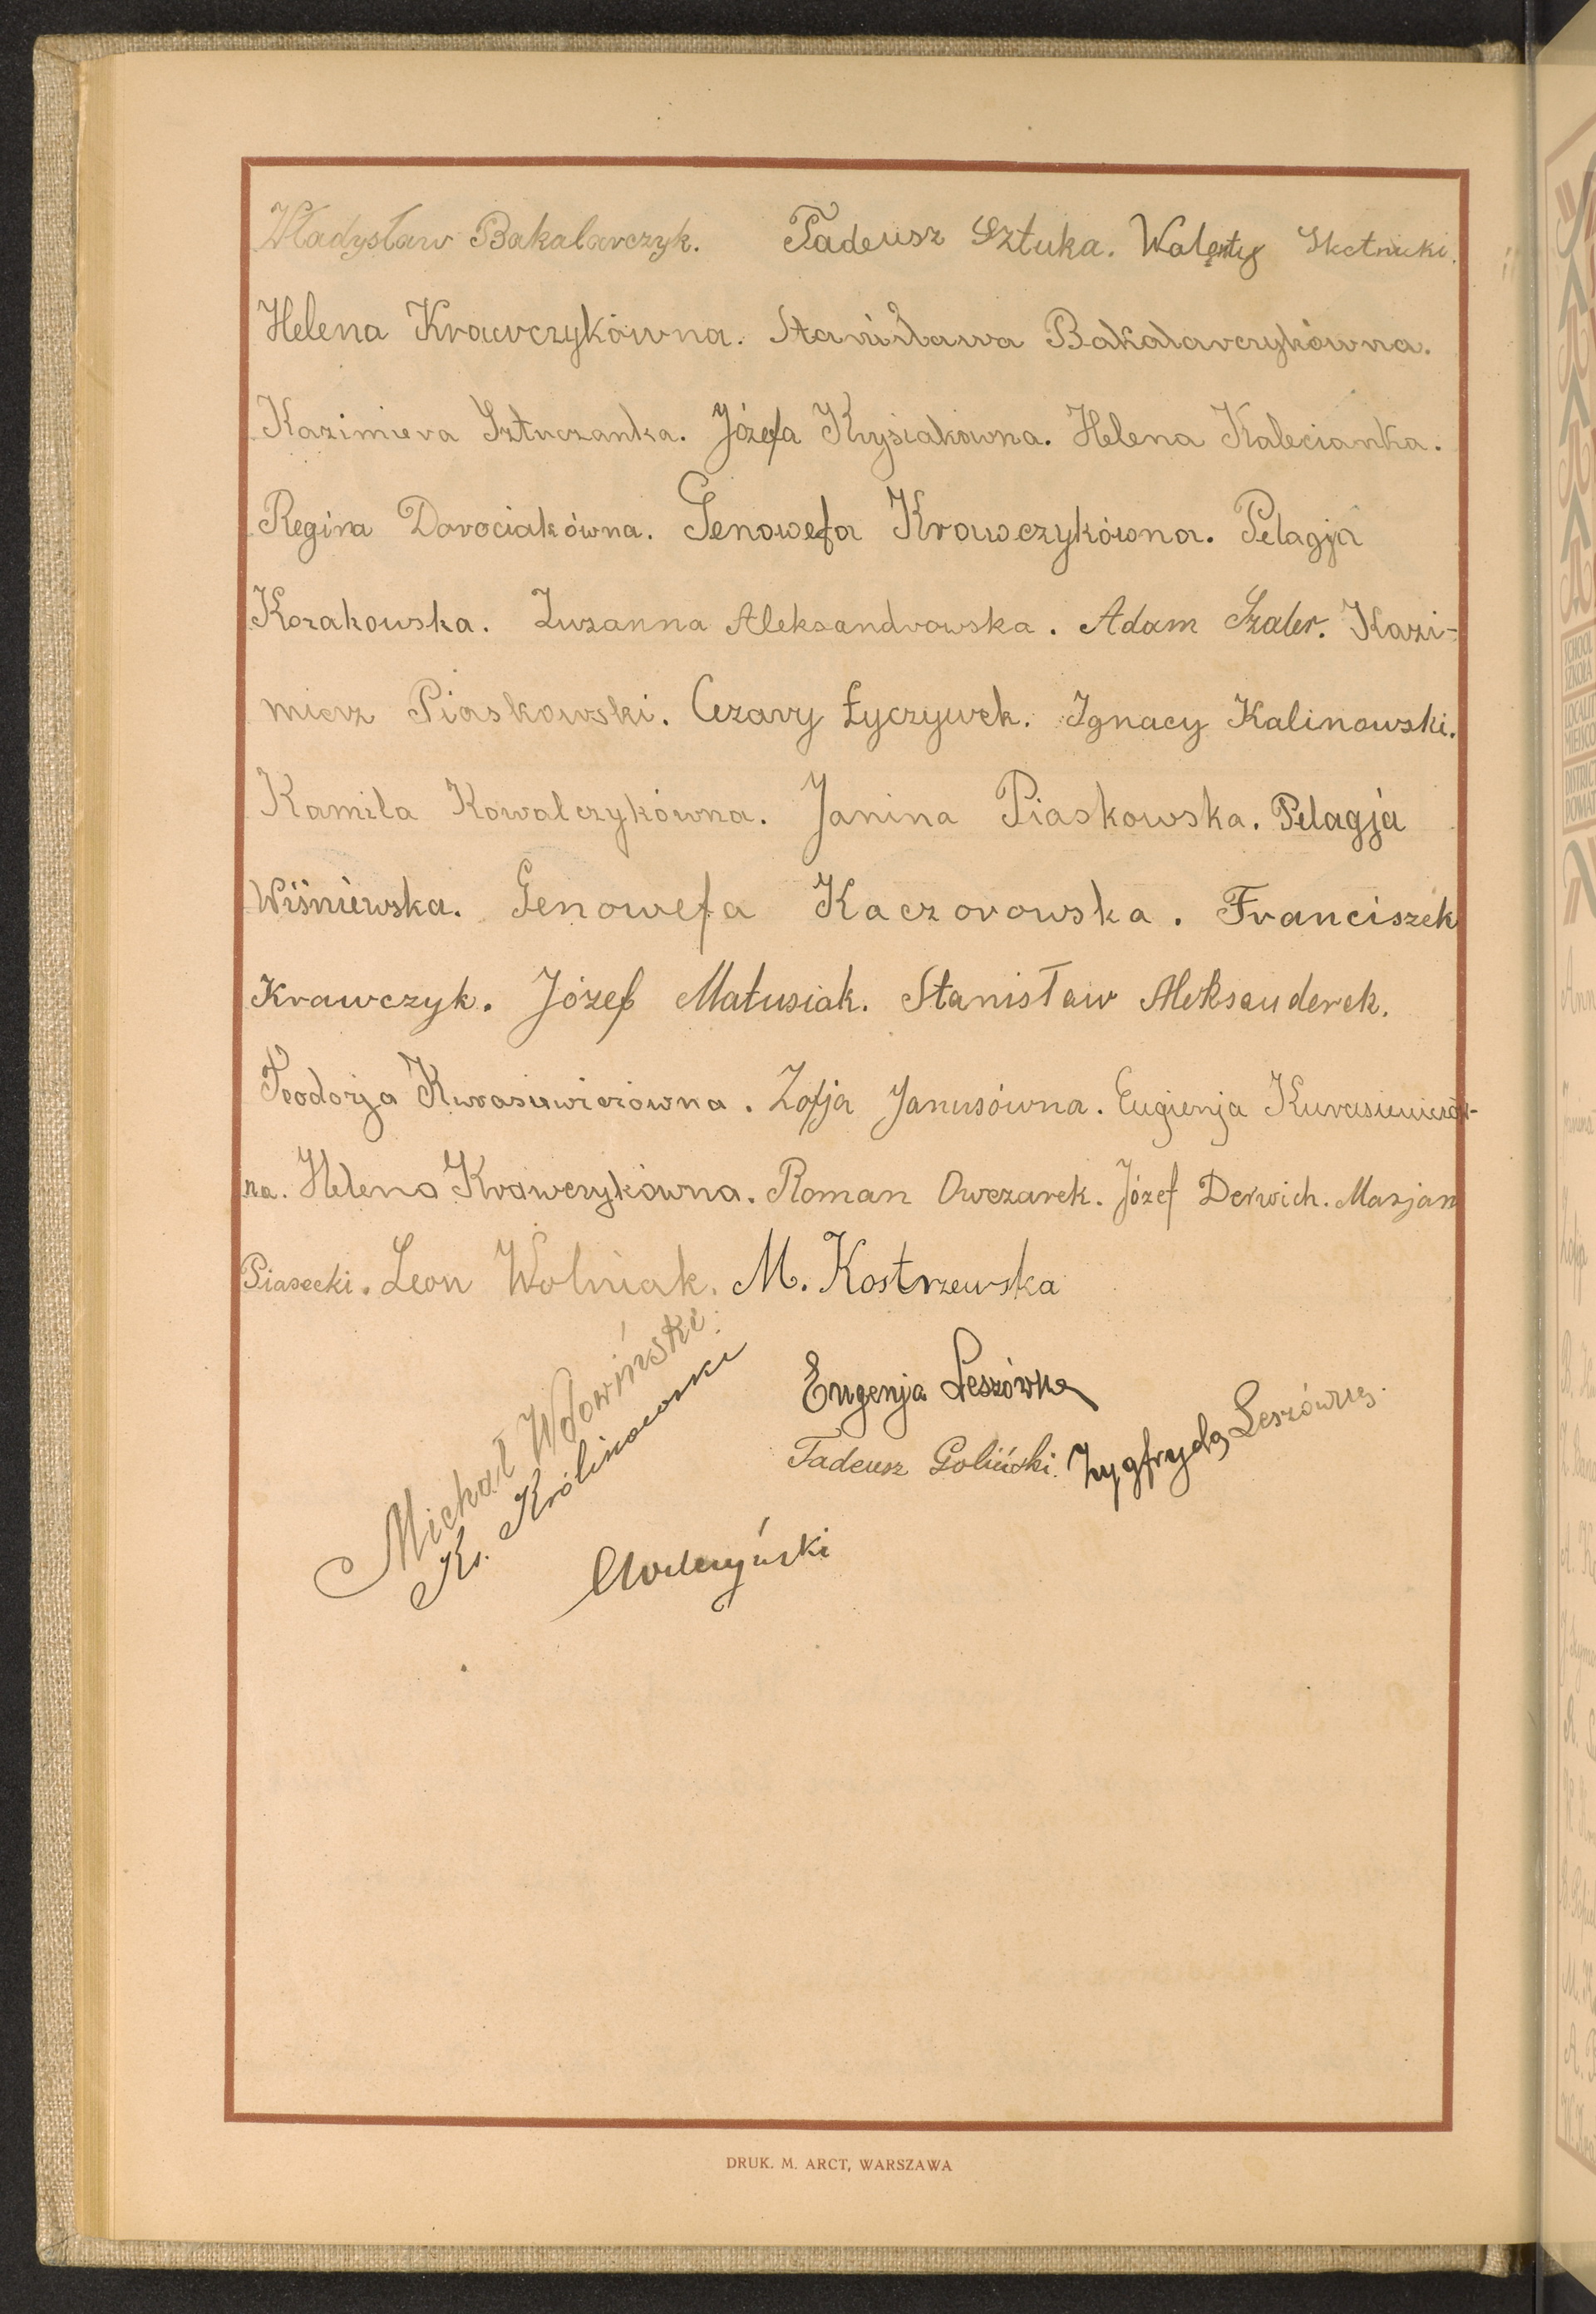 Władysław Bakalarczyk. Tadeusz Sztuka. Walenty Skotnicki.
Helena Krawczykówna. Stanisława Bakalarczykówna.
Kazimiera Sztuczanka. Józefa Krysiakówna. Helena Kalecianka.
Regina Dorociakówna. Genowefa Krawczykówna. Pelagja
Kozakowska. Zuzanna Aleksandrowska. Adam Szaler. Kazi-
mierz Piaskowski. Cezary Łyczywek. Ignacy Kalinowski.
Kamila Kowalczykówna. Janina Piaskowska. Pelagja
Wiśniewska. Genowefa Kaczorowska. Franciszek
Krawczyk. Józef Matusiak. Stanisław Aleksanderek.
Teodozja Kurasiewiczówna. Zofja Janusówna. Eugienja Kurasiewiczów-
na. Helena Krawczykówna. Roman Owczarek. Józef Derwich. Marjan
Piasecki. Leon Wolniak. M. Kostrzewska
Michał Wdowiński.
Ks. Królikowski
Eugenja Leszówna
Tadeusz Goliński. Zygfryda Leszówna.
DRUK. M. ARCT, WARSZAWA